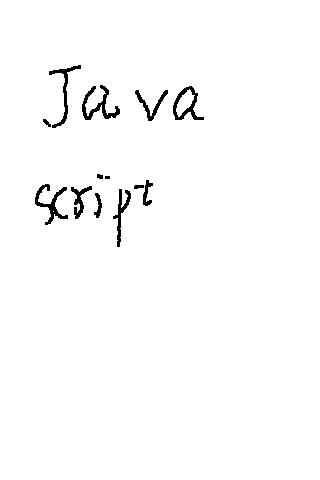 Java
script